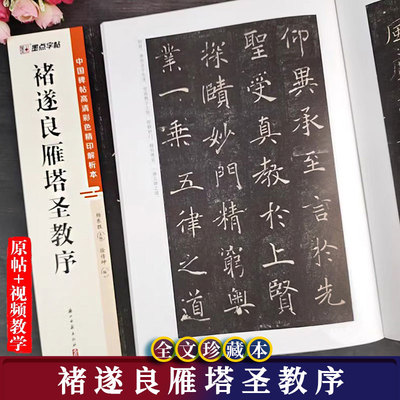 墨点字帖
中国碑帖高清彩色精印解析本
褚遂良雁塔圣教序
原帖+视频教学
仰異承至言於先
聖受真教於上賢
探賾妙門精窮奧
業一乘五律之道
全文珍藏本
褚遂良雁塔圣教序